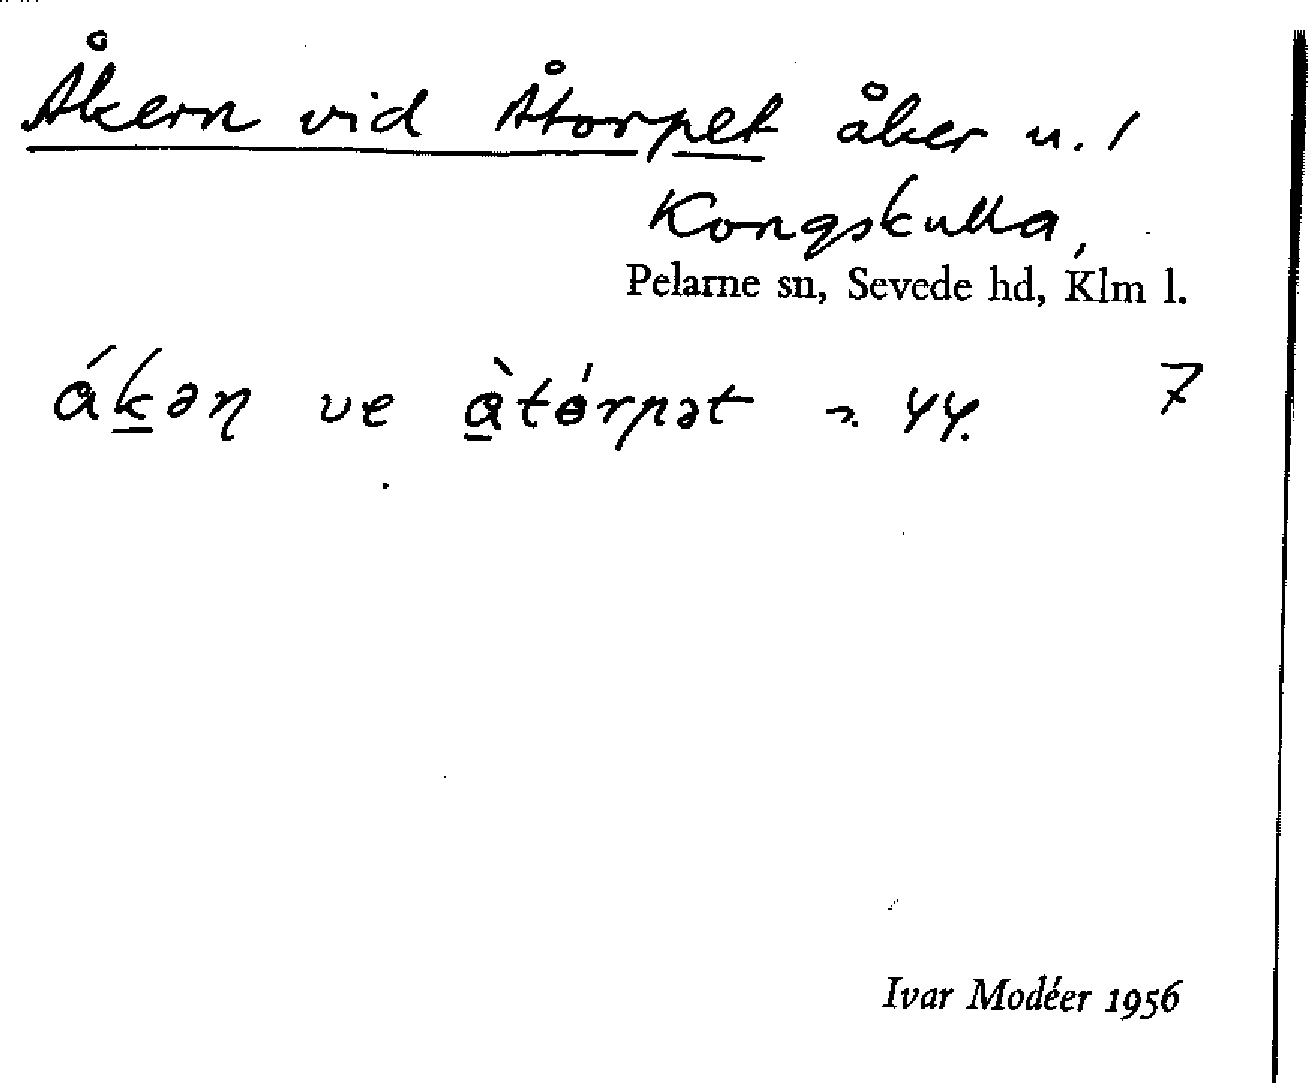 Åkern vid Åtorpet åker u. 1
Kongskulla,
Pelarne sn, Sevede hd, Klm l.
ákəɳ ve àtórpət n. 44. 7
Ivar Modéer 1956